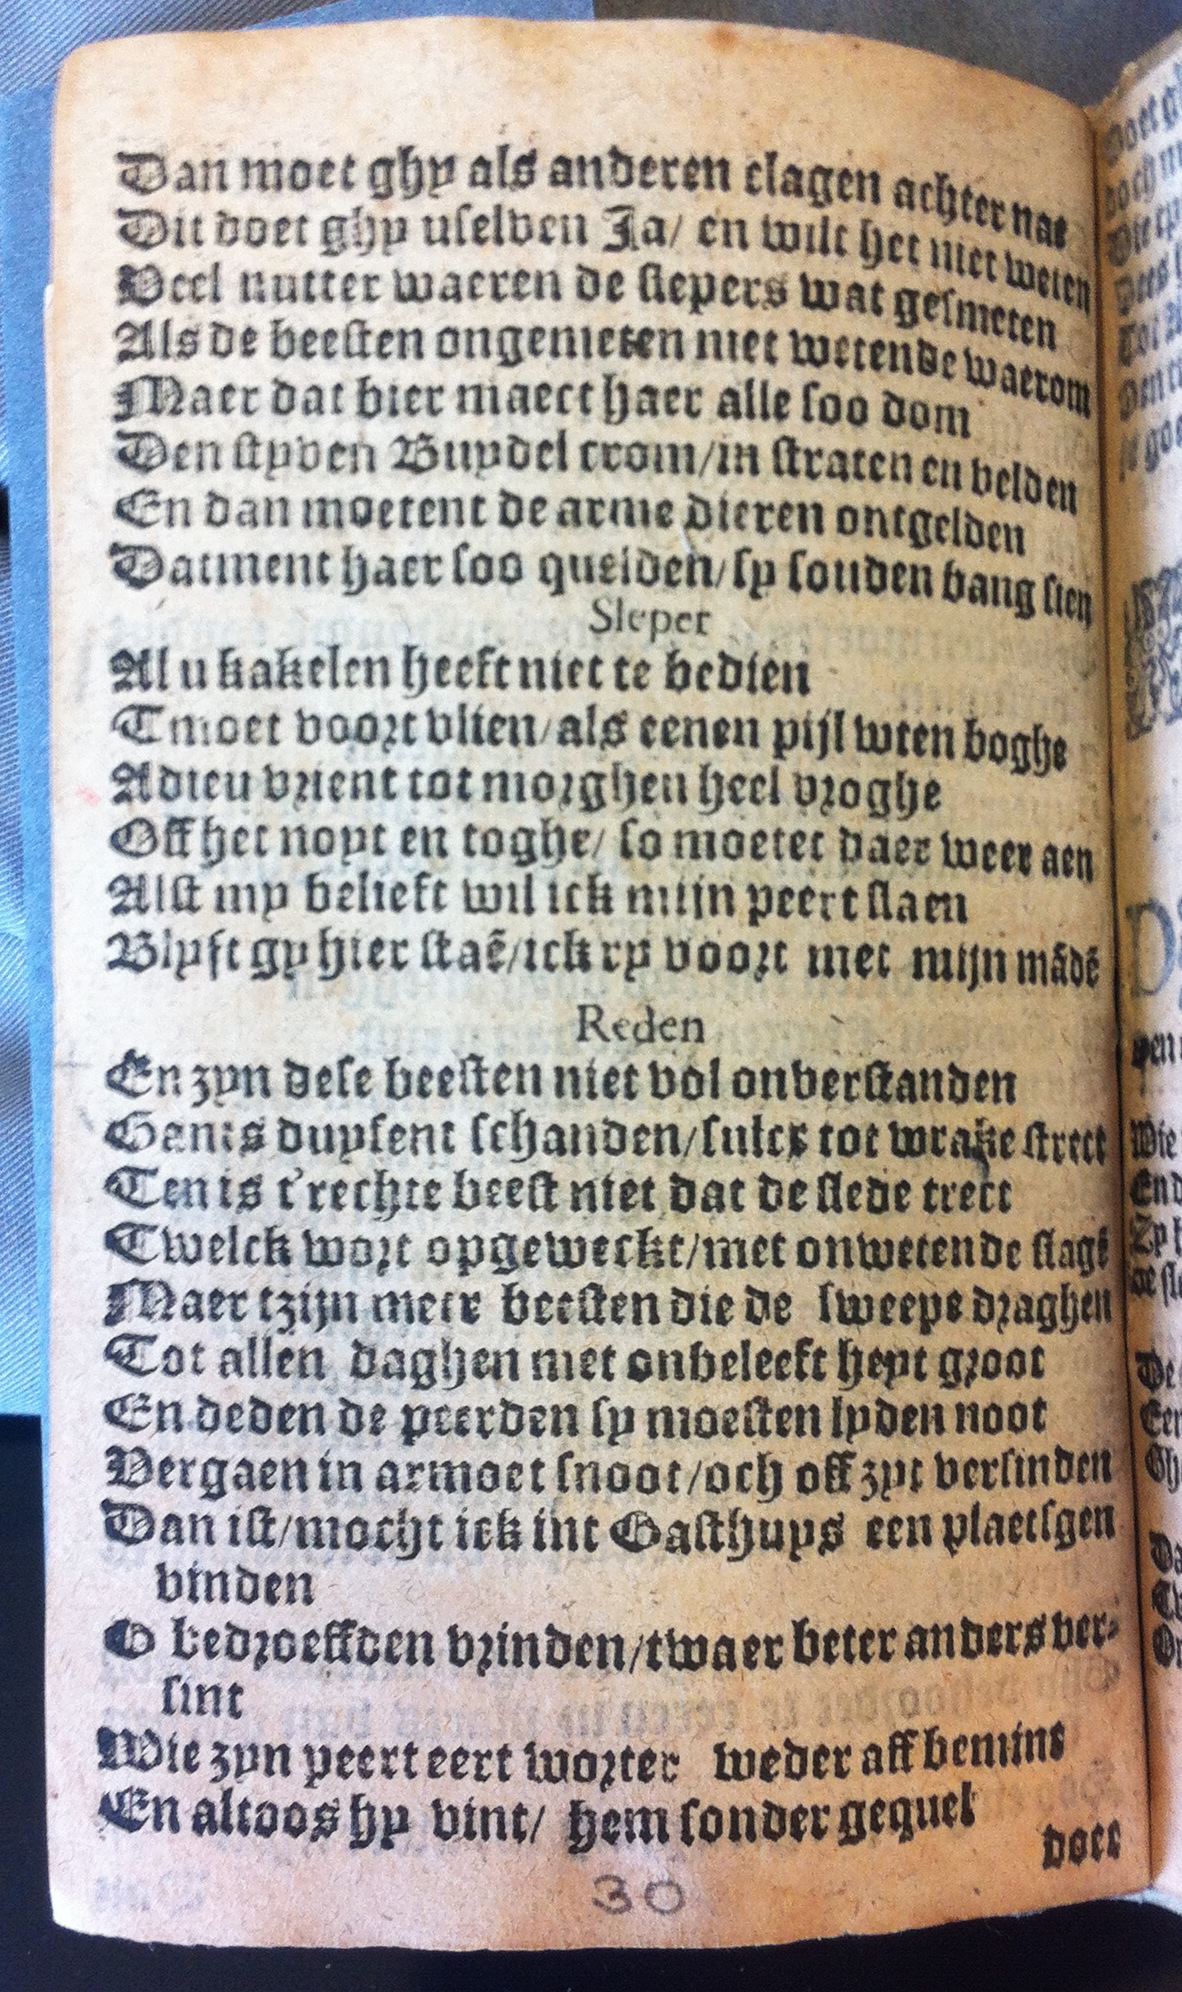 Dan moet ghy als anderen clagen achter nae
Dit doet ghy uselven Ja/ en wilt het niet weten
Veel nutter waeren de slepers wat gesmeten
Als de beesten ongemeten niet wetende waerom
Maer dat bier maect haer alle soo dom
Den styven Buydel crom/in straten en velden
En dan moetent de arme dieren ontgelden
Datment haer soo quelden/sy souden bang sien
Sleper
Al u kakelen heeft niet te bedien
Tmoet voort vlien/als eenen pijl wten boghe
Adieu vrient tot morghen heel vroghe
Off het noyt en toghe/ so moetet daer weer aen
Alst my belieft wil ick mijn peert slaen
Blyft gy hier staẽ/ick ry voort met mijn mãdẽ
Reden
En zyn dese beesten niet vol onverstanden
Gants duysent schanden/sulcx tot wrake strect
Ten is t'rechte beest niet dat de slede trect
Twelck wort opgeweckt/met onwetende slagẽ
Maer tzijn meer beesten die de sweepe draghen
Tot allen daghen met onbeleeft heyt groot
En deden de peerden sy moesten lyden noot
Vergaen in armoet snoot/och off zyt versinden
Dan ist/mocht ick int Gasthuys een plaetsgen
vinden
O bedroeffden vrinden/twaer beter anders ver-
sint
Wie zyn peert eert worter weder aff bemint
En altoos hy vint/ hem sonder gequel
doer
30